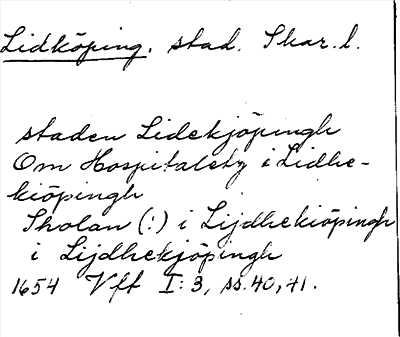 Lidköping. stad. Skar. l.
staden Lidekjöpingh
Om Hospitaletz i Lidhe-
kiöpingh
Skolan (!) i Lijdhekiöpingh
i Lijdhekjöpingh
1654 Vft I: 3, ss. 40, 41.